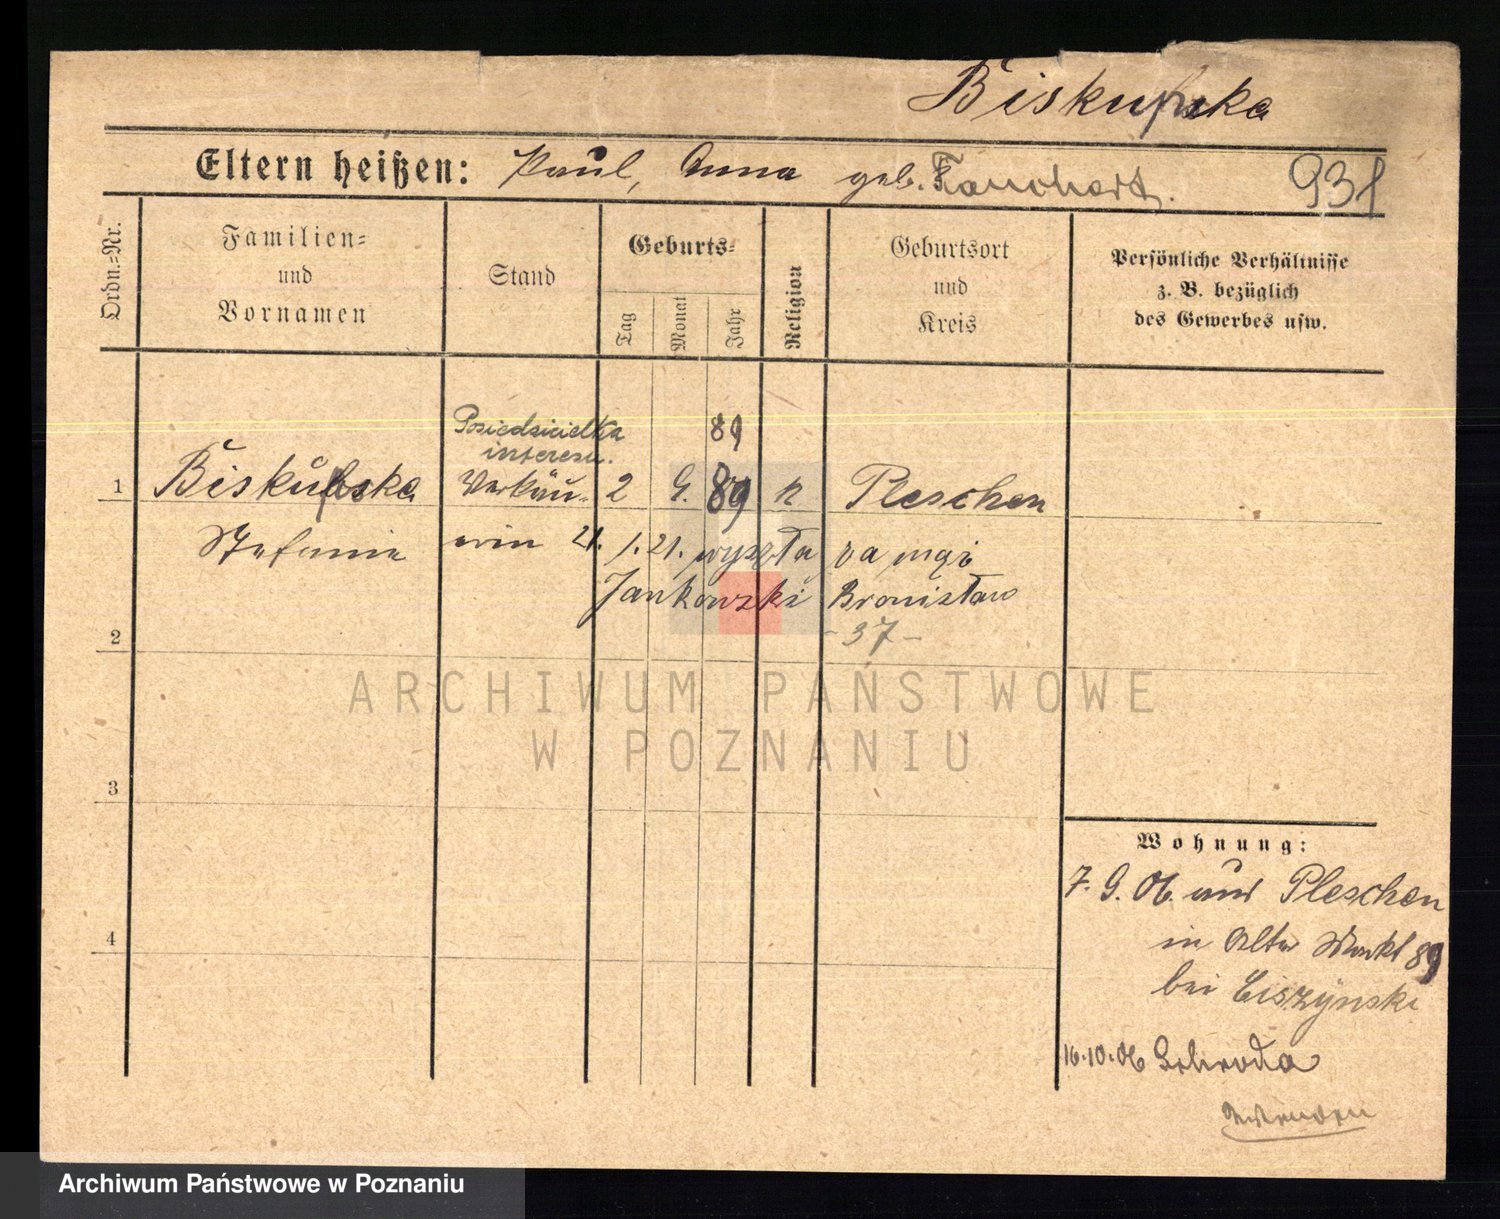 Biskupska
Eltern heißen: Paul, Anna geb. Tauchert. 931
Ordn.=Nr.
Familien=
und
Vornamen
Stand
Geburts=
Tag
Monat
Jahr
Religion
Geburtsort
und
Kreis
Persönliche Verhältnisse
z. B. bezüglich
des Gewerbes usw.
Posiedzicielka 89
interesu.
1 Biskupska Verkäu= 2 9. 89 k Pleschen
Stefanie erin 21. 1. 21. wyszła za mąż
Jankowski Bronisław
2 - 37 -
3
4
Wohnung:
7. 9. 06. aus Pleschen
in Alter Markt 89
bei Ciszynski
16.10.06 Schroda
Wenden
ARCHIWUM PAŃSTWOWE
W POZNANIU
Archiwum Państwowe w Poznaniu